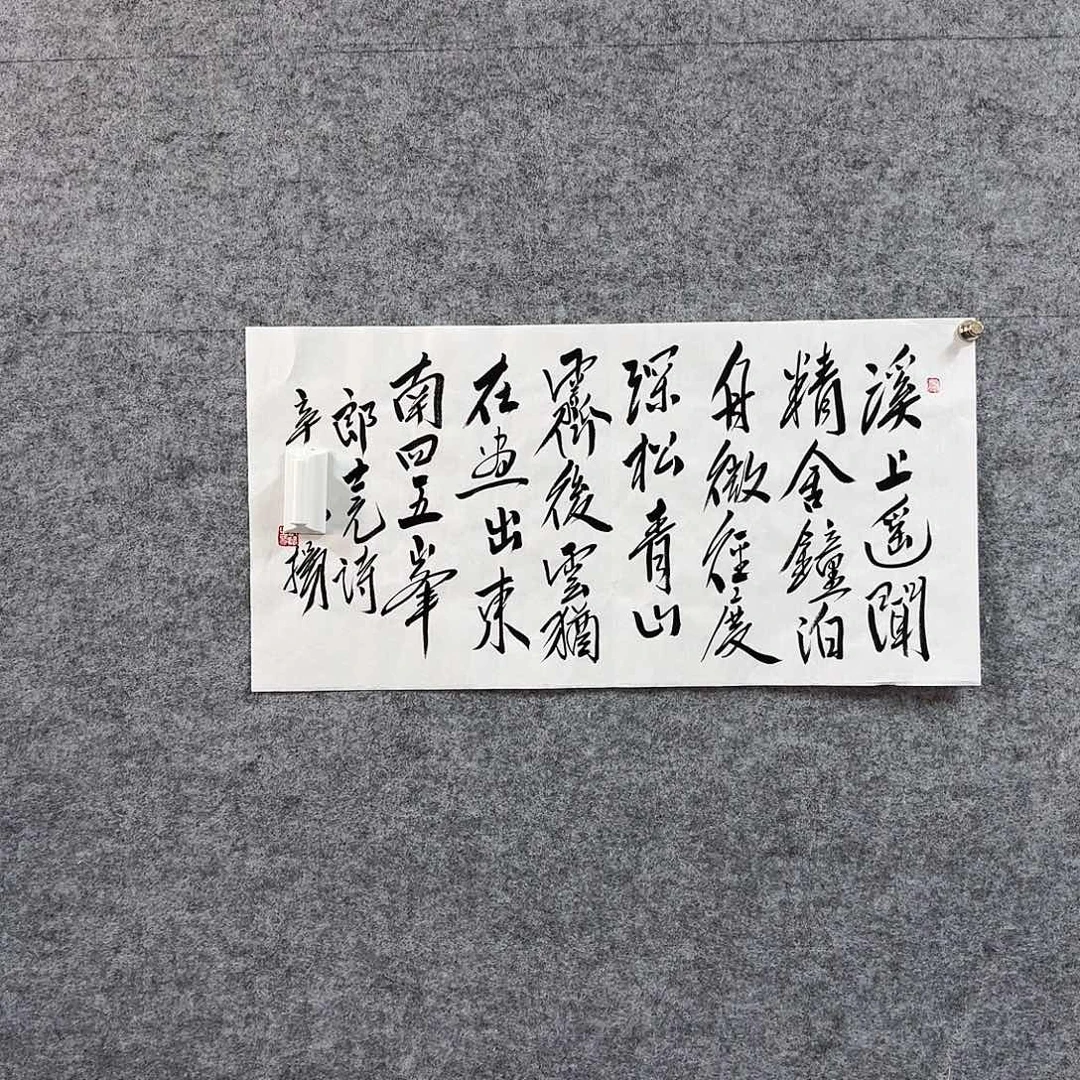 溪上遙聞
精舍鐘泊
舟微徑度
深松青山
霽後雲猶
在畫出東
南四五峯
郎士元詩
辛